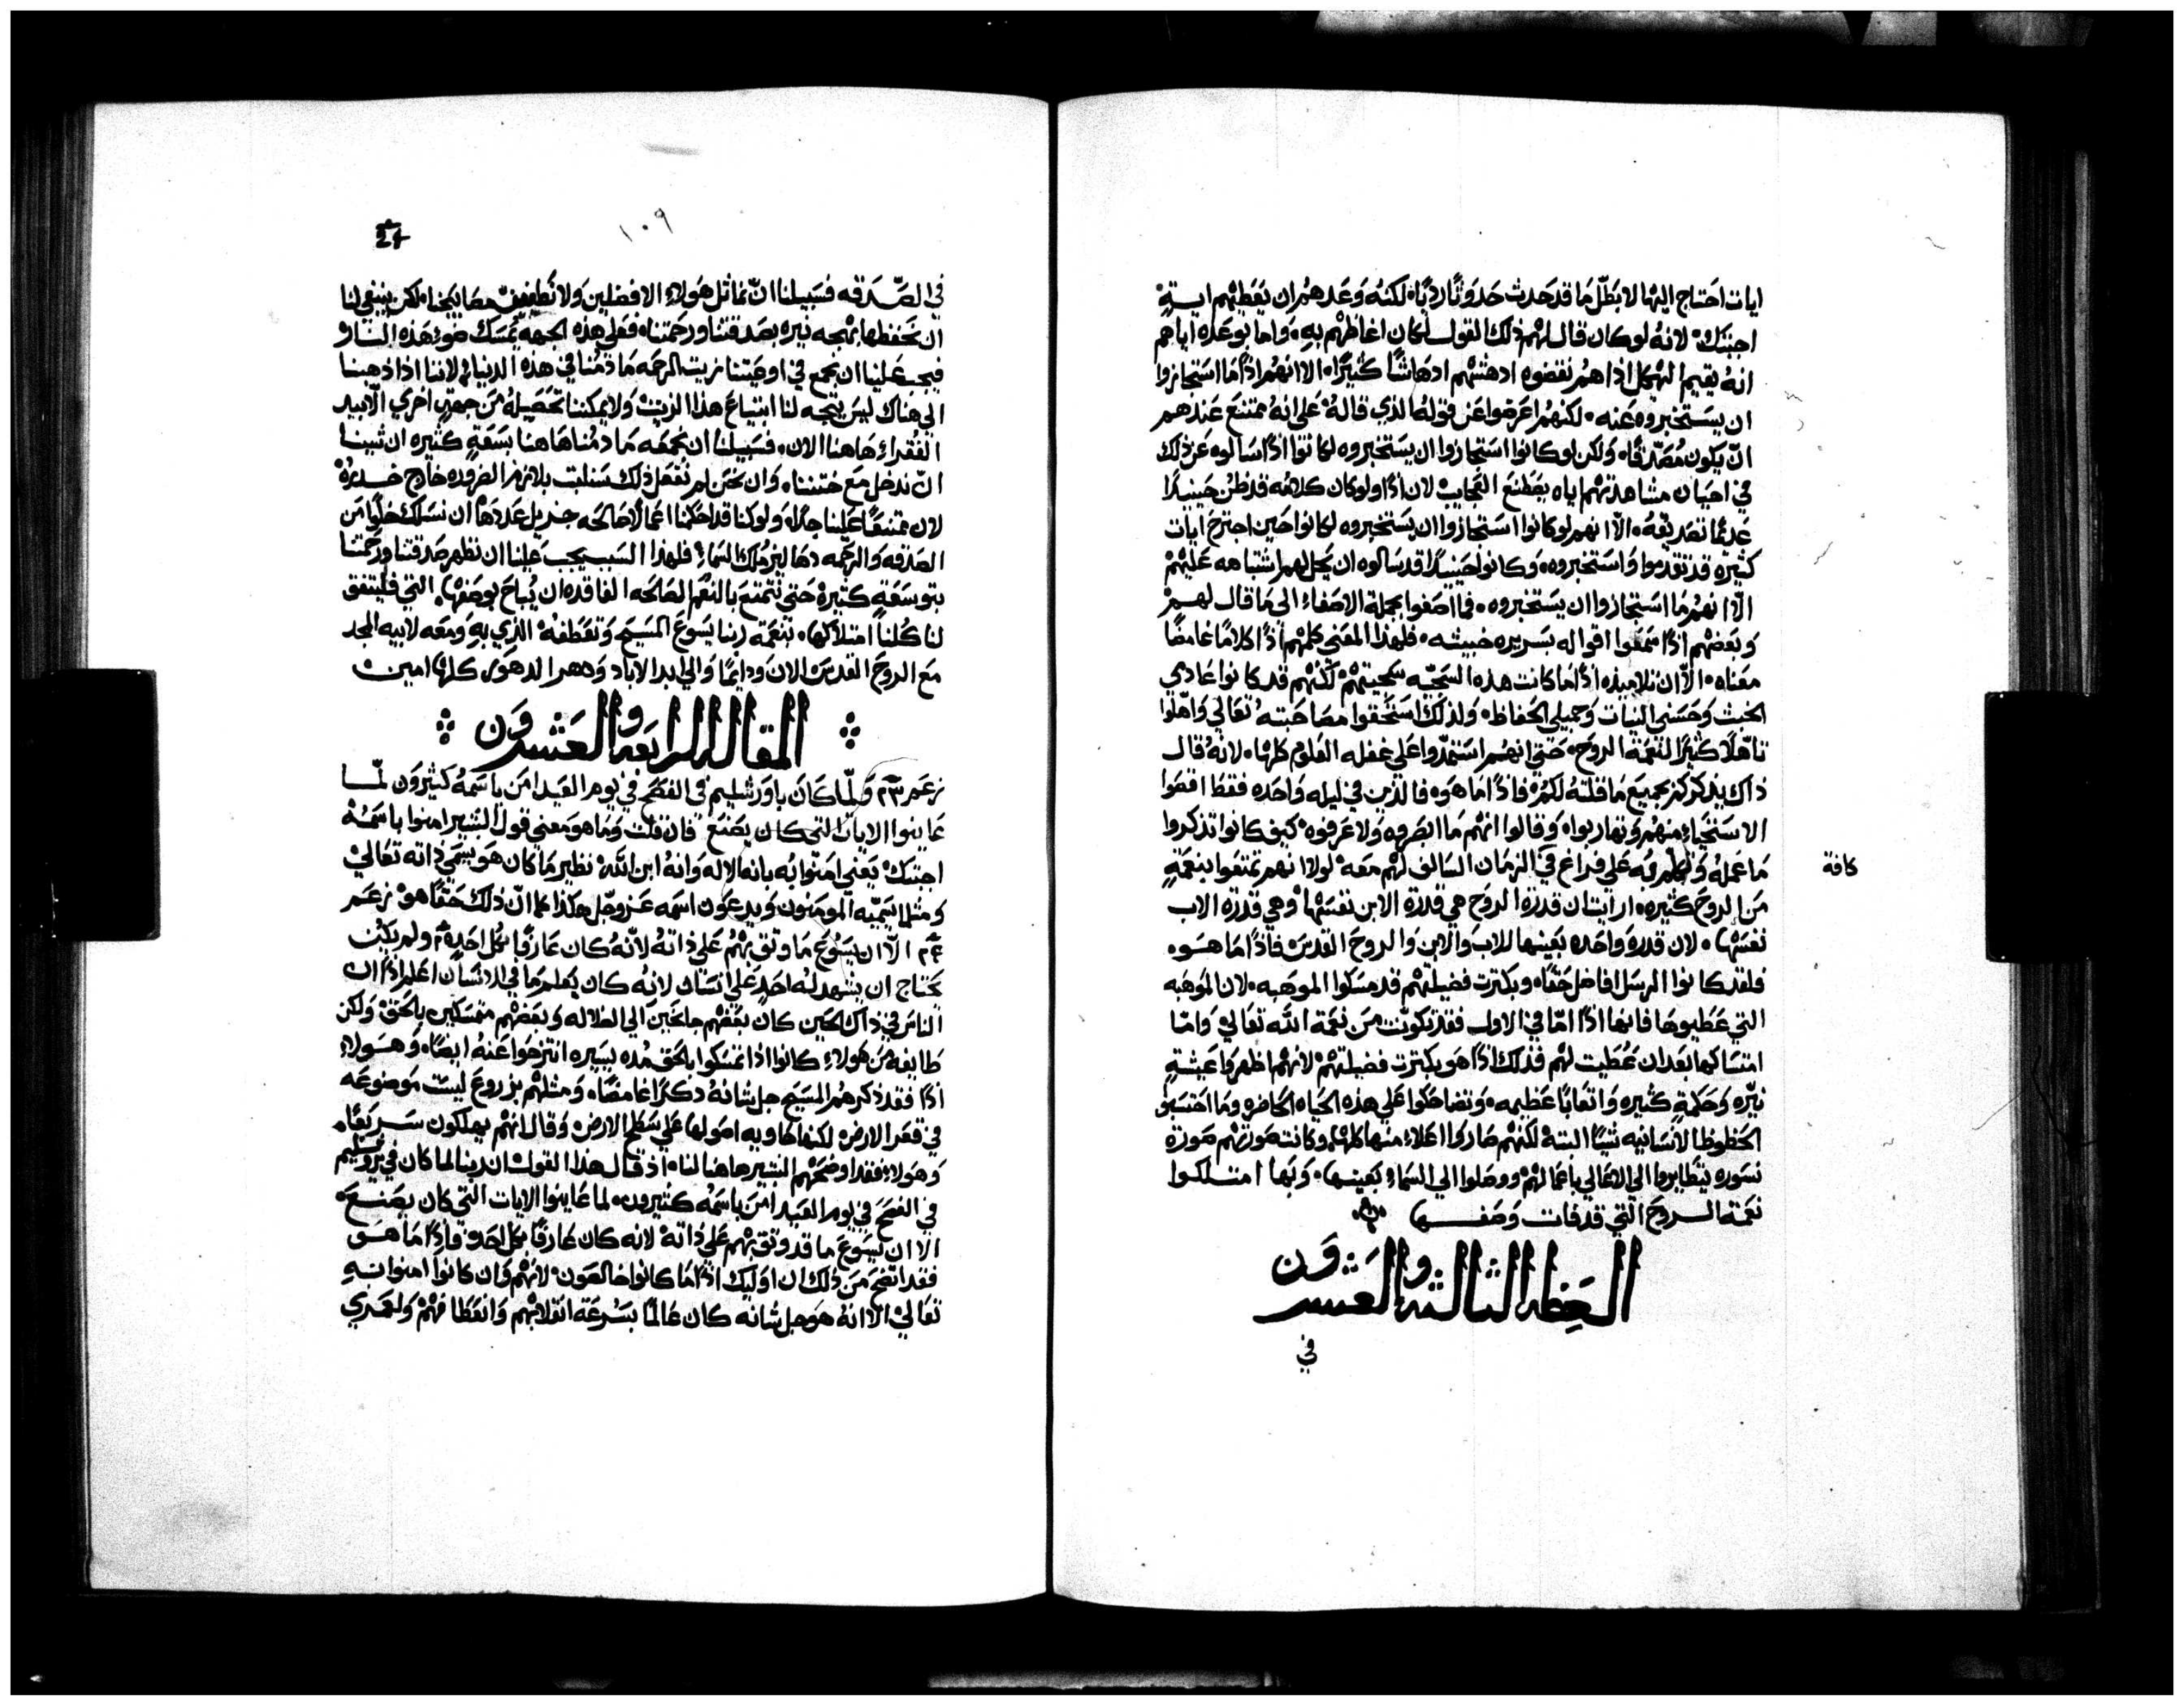 ايات احتاج اليها لابطل ما قد حدث حدوثًا رديًا. لكنه وعدهم ان يعطيهم ايةٍ
اجبتك. لانه لو كان قال لهم ذلك القول لكان اغاظهم به. واما بوعده اياهم
انه يقيم الهيكل اذا هم نقضوه ادهشهم ادهاشًا كثيرًا. الا انهم اذًا ما استجازوا
ان يستخبروه عنه. لكنهم اعرضوا عن قوله الذي قاله على انه ممتنع عندهم
ان يكون مُصدّقًا. ولكن لو كانوا استجازوا ان يستخبروه لكانوا اذًا سالوه عن ذلك
في احيان مشاهدتهم اياه يصطنع العجايب لان اذًا ولو كان كلامه قد ظن حينيذًا
عديمًا تصديقه. الّا انهم لو كانوا استجازوا ان يستخبروه لكانوا حين اجترح ايات
كثيره قد تقدموا واستخبروه. وكانوا حينيذًا قد سالوه ان يحل لهم اشتباهه عليهم
الّا انهم ما استجازوا ان يستخبروه. فما اصغوا بجملة الاصغاء الى ما قال لهم
وبعضهم اذًا سمعوا اقواله بسريره خبيثه. فلهذا المعني كلمهم اذًا كلامًا غامضًا
معناه. الّا ان تلاميذه اذًا ما كانت هذه السجيّه سجيتهم لكنهم قد كانوا عادمي
الخبث وحسني النيات وجميلي الحفاظ. ولذلك استحقوا مصاحبته تعالي واهّلوا
تاهلًا كثيرًا لنعمة الروح. حتي انهم استمدّوا علي غفله العلوم كلها. لانه قال
ذاك يذكركم بجميع ما قلته لكم. فاذًا ما هوه فالذين في ليله واحده فقط اقصوا
الاستحياء منهم وتهاربوا. وقالوا انهم ما ابصروه ولا عرفوه. كيف كانوا تذكروا
ما عمله وتكلم به علي فراغ في الزمان السالف لهم معه. لولا انهم تمتعوا بنعمةٍ
كافة
من الروح كثيره. ارايت ان قدرة الروح هي قدرة الابن نفسها. وهي قدرة الاب
نفسها. لان قدرة واحده بعينها للاب والابن والروح القدس فاذًا ما هوه
فلقد كانوا الرسل افاضل حقًا. وبكثرت فضيلتهم قد مسكوا الموهبه. لان الموهبه
التي عطيوها فانها اذًا امّا في الاول فقد تكونت من نعمة الله تعالي. وامّا
امتساكها بعد ان عُطيت لهم فذلك اذًا هو بكثرت فضيلتهم. لانهم اظهروا عيشةٍ
نيّره وحكمةٍ كثيره واتعابًا عظيمه. وتضاحكوا علي هذه الحياه الحاضره وما احتسبوا
الحظوظ الانسانيه شيًا البتة لكنهم صاروا اعلاء منها كلها. وكانت صورتهم صورة
نسوره يتطايروا الي الاعالي باعمالهم ووصلوا الي السماء بعينها. وبها امتلكوا
نعمة الروح التي قد فات وصفها
العظه الثالثه والعشرون
في
١٠٩
24
في الصّدقه فسبيلنا ان نماثل هولاء الافضلين ولا تطفيٌ مصابيحنا. لكن ينبغي لنا
ان نحفظها بهجه نيره بصدقتنا ورحمتنا. فعلي هذه الجهه يُمسك ضوء هذه النار
فيجب علينا ان نجمع في اوعيتنا زيت الرحمه ما دُمنا في هذه الدنيا. لاننا اذا ذهبنا
الي هناك ليس يتجه لنا ابتياع هذا الزيت ولا يمكننا تحصيله من جهةٍ اخري الّا بيد
الفقراء هاهنا الان. فسبيلنا ان نجمعه ما دمنا هاهنا بسعةٍ كثيره ان شينا
ان ندخل مع ختننا. وان نحن لم نفعل ذلك سنلبث بلازم الضروره خارج خدره
لان ممتنعًا علينا جدًا. ولو كنا قد احكمنا اعمالًا صالحه جزيل عددها ان نسلك خلوًا من
الصدقه والرحمه دهاليز مُلك السماء. فلهذا السبب يجب علينا ان نظهر صدقتنا ورحمتنا
بتوسعةٍ كثيرة حتي نتمتع بالنعم الصالحه الفاقده ان يُباح بوصفها. التي فليتفق
لنا كُلنا امتلاكها. بنعمة ربنا يسوع المسيح وتعطفه الذي به ومعه لابيه المجد
مع الروح القدس الان ودايمًا والي ابد الاباد ودهر الدهور كلها امين
المقاله الرابعه والعشرون
زعم ٢٣ ولمّا كان باورشليم في الفصح في يوم العيد امن باسمهُ كثيرون لمّا
عاينوا الايات التي كان يصنع فان قلت وما هو معني قول البشير امنوا باسمه
اجبتك. يعني امنوا به بانه الاله وانه ابن الله. نظير ما كان هو يسمي ذاته تعالي
ومثلما يسميه المومنون ويدعون اسمه عز وجل هكذا كما ان ذلك حقًا هو. زعم
٢٤ الّا ان يسوع ما وثق بهم علي ذاته لانه كان عارفًا بكل احدٍ ٢٥ ولم يكن
محتاج ان يشهد له احدٍ علي انسان لانه كان يعلم ما في الانسان اعلم اذًا ان
الناس في ذاك الحين كان بعضهم جانحين الي الضلاله وبعضهم متمسكين بالحق. ولكن
طايفه من هولاء كانوا اذا تمسكوا بالحق مُده يسيره انتزحوا عنه ايضًا. وهولاء
اذًا فقد ذكرهم المسيح جل شانهُ ذكرًا غامضًا. ومثلهم بزروع ليست موضوعه
في قعر الارض لكنها حاويه اصولها علي سطح الارض وقال انهم يهلكون سريعًا.
وهولاء فقد اوضحهم البشير هاهنا لنا. اذ قال هذا القول ان ربنا لما كان في يروشليم
في الفصح في يوم العيد امن باسمه كثيرون. لما عاينوا الايات التي كان يصنع.
الا ان يسوع ما قد وثق بهم علي ذاته لانه كان عارفًا بكل احدٍ فاذًا ما هو
فقد اتضح من ذلك ان اوليك اذًا ما كانوا خالصون. لانهم وان كانوا امنوا به
تعالي. الا انه هو جل شانه كان عالمًا بسرعة انقلابهم وانعطافهم. ولعمري